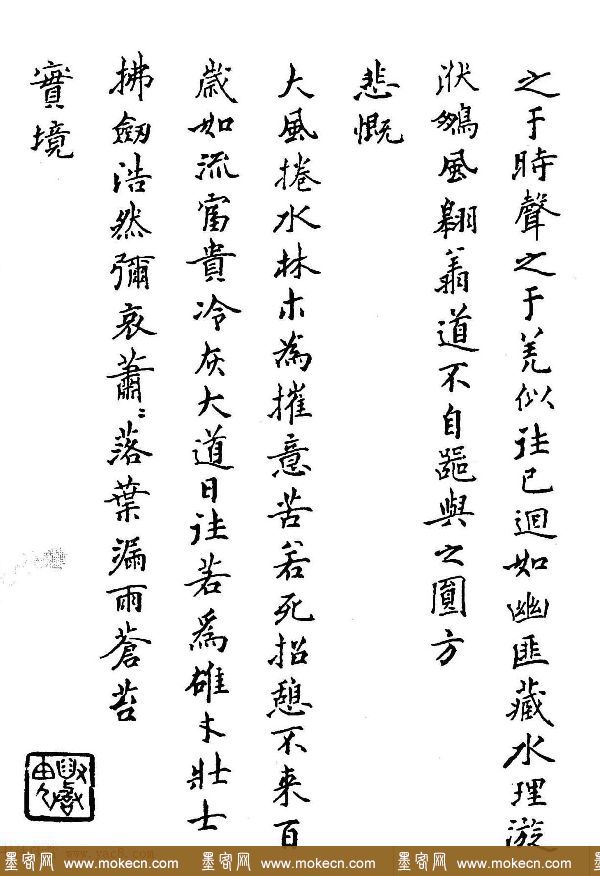 之于時聲之于羌似往已迴如幽匪藏水理漩
洑鵬風翱翔道不自器與之圓方
悲慨
大風捲水林木為摧意苦若死招憩不来百
歲如流富貴冷灰大道日往若為雄才壯士
拂劒浩然彌哀蕭〻落葉漏雨蒼苔
實境
墨客网 www.mokecn.com 墨客网 www.mokecn.com 墨客网 www.mokecn.com